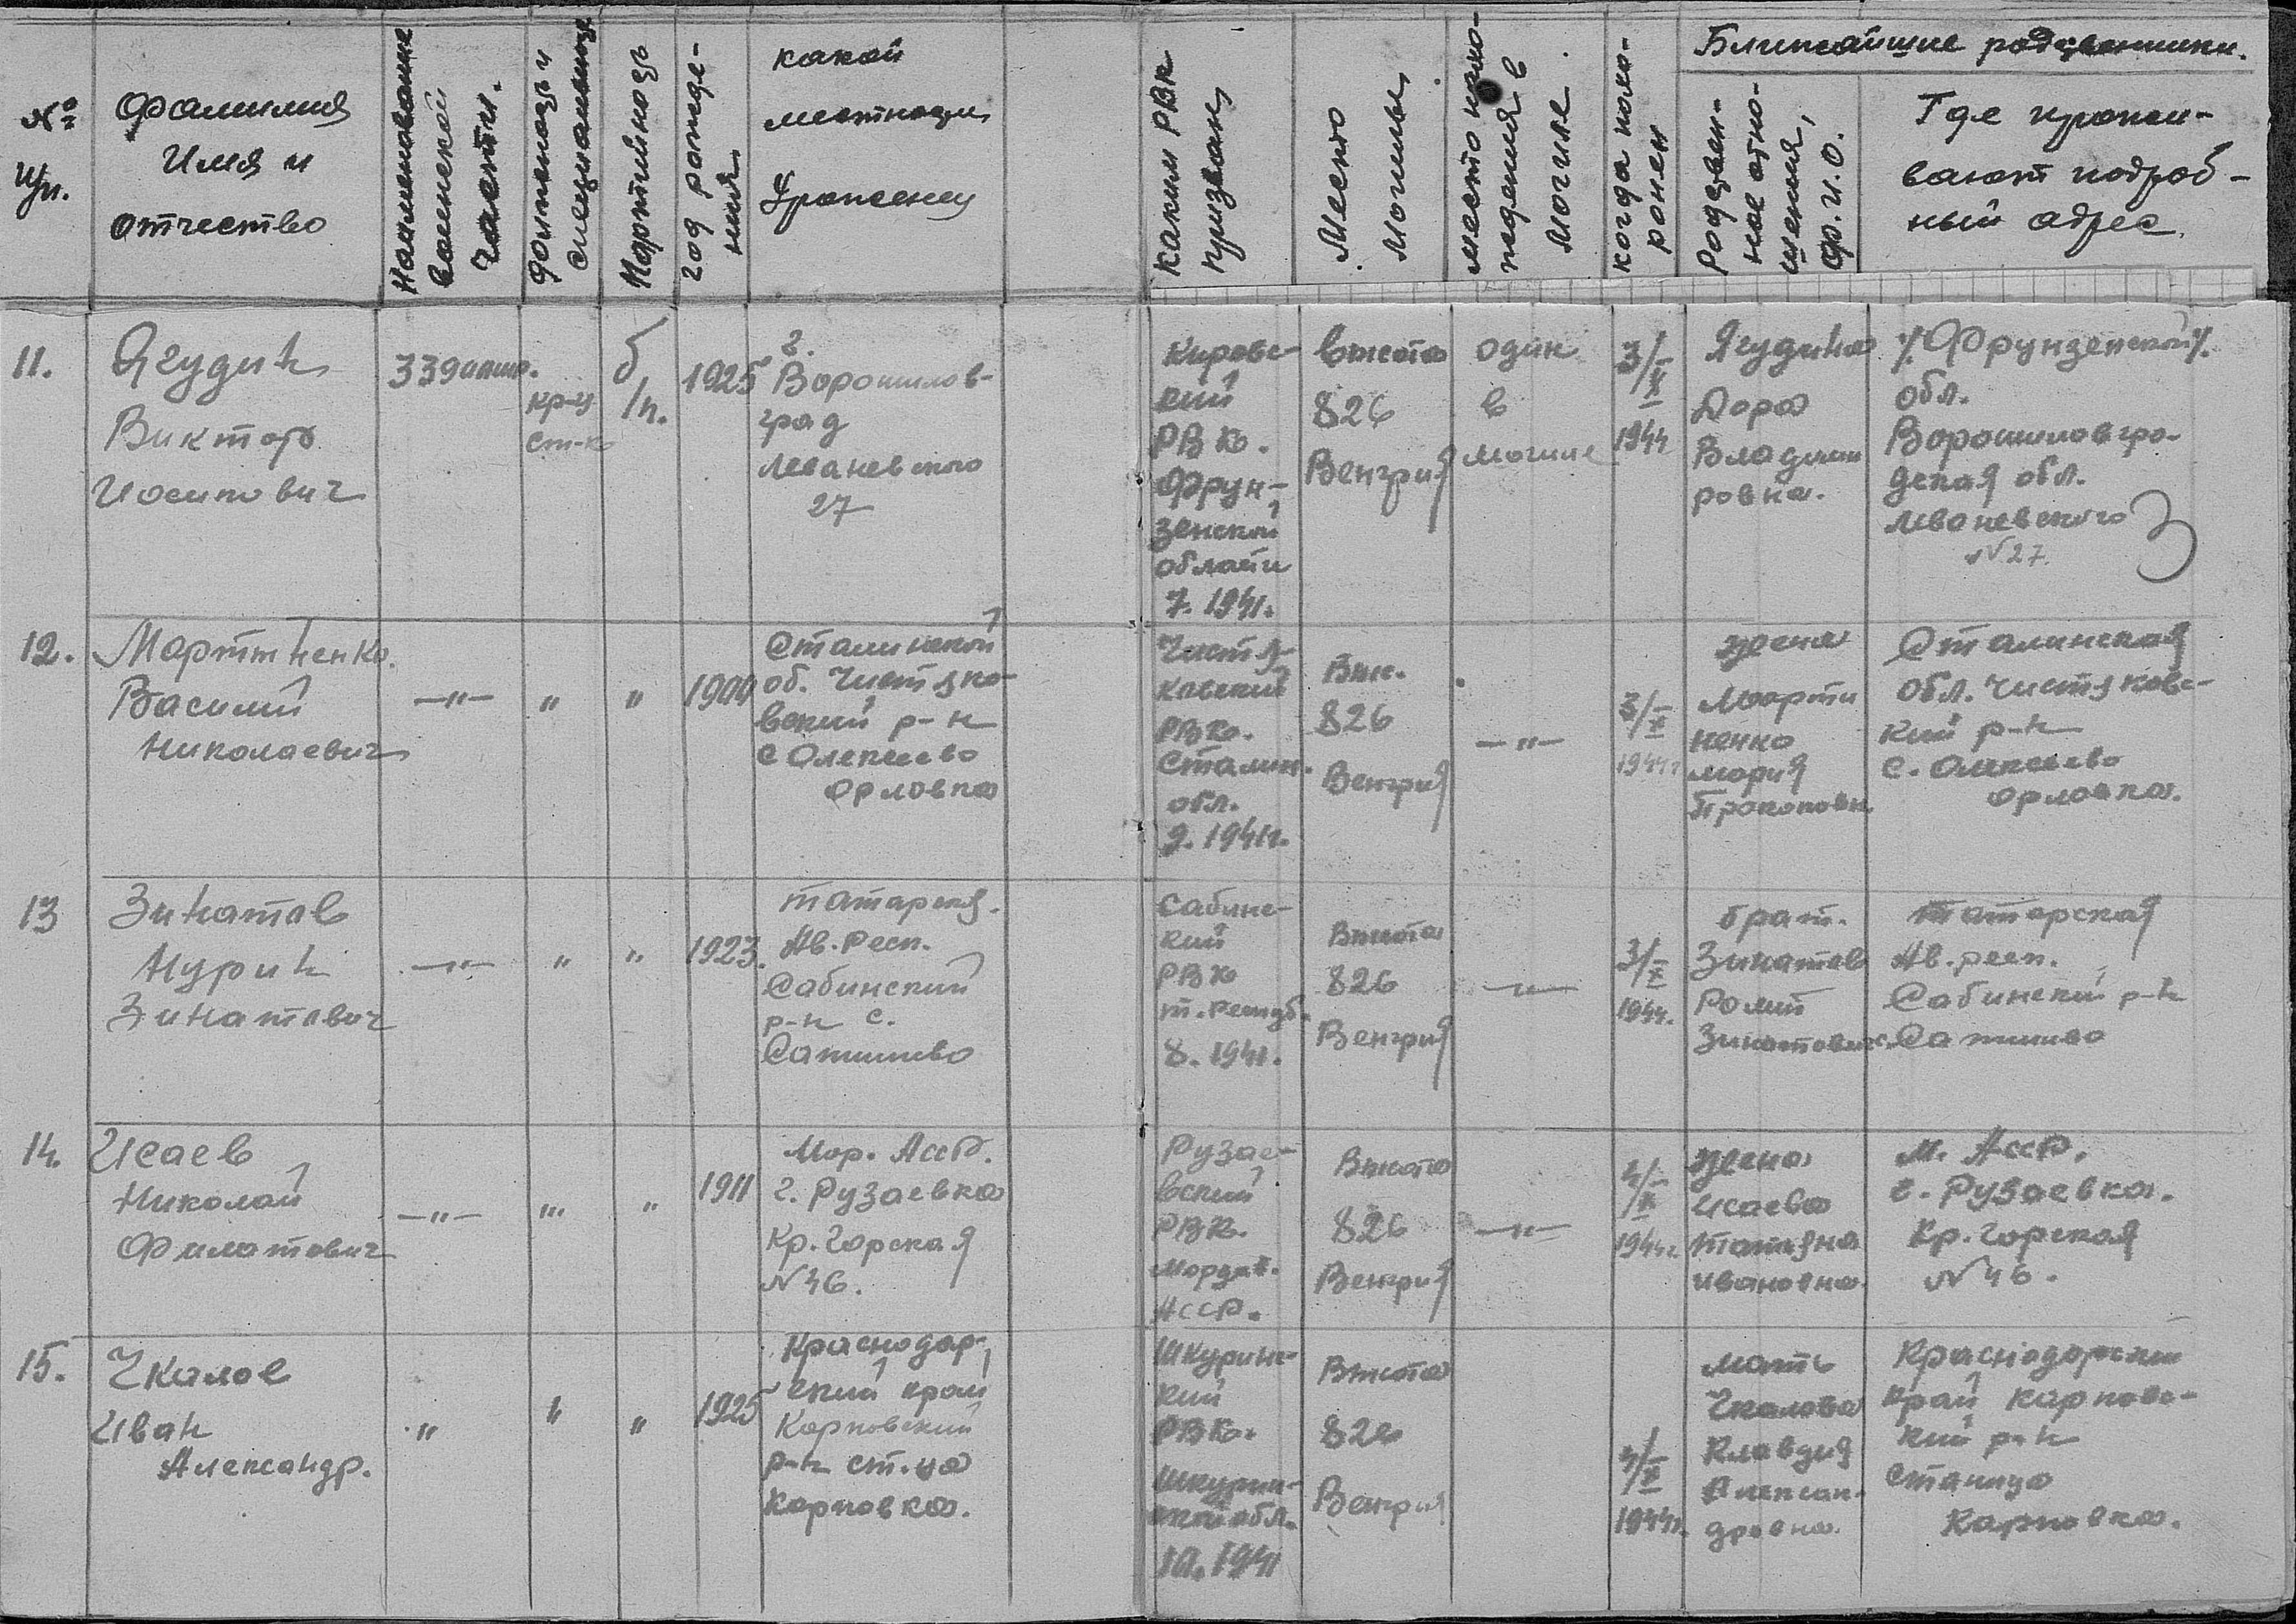 №
п/п.
Фамилия
Имя и
отчество
Наименование
воинской
части.
Должность и
специальность
Партийность
год рожде-
ния
какой
местности
Уроженец
Каким РВК
призван
Место
Могилы
место нахо-
ждения в
могиле.
когда похо-
ронен
Ближайшие родственники.
Родствен-
ное отно-
шения,
Ф.И.О.
Где прожи-
вают подроб-
ный адрес.
11.
Ягудин
Виктор
Иосипович
339
кр-ц
ст-к
б/п.
1925
г.
Ворошилов-
град
Леваневского
27
Кировс-
кий
РВК.
Фрун-
зенской
области
7. 1941.
высота
826
Венгрия
один
в
могиле
3/X
1944
Ягудина
Дора
Владими
ровна.
Фрунзенской
обл.
Ворошиловгро-
дская обл.
Леваневского
№ 27.
12.
Мартыненко.
Василий
Николаевич
—"—
"
"
1900
Сталинской
об. Чистяко-
вский р-н
с Олексеево
Орловка
Чистя-
ковский
РВК.
Сталин.
обл.
9. 1941г.
Выс.
826
Венгрия
—"—
3/X
1944г
жена
Марти
ненко
Мария
Прокоповн.
Сталинская
обл. Чистяковс-
кий р-н
с. Олексеево
Орловка.
13
Зинатов
Нурин
Зинатович
—"—
"
"
1923.
Татарская.
Ав. Респ.
Сабинский
р-н с.
Сатышево
Сабинс-
кий
РВК
т. респуб.
8. 1941.
Высота
826
Венгрия
—"—
3/X
1944.
брат.
Зинатов
Ромит
Зинатович.
Татарская
Ав. респ.
Сабинский р-н
Сатышево
14.
Исаев
Николай
Филатович
—"—
"
"
1911
Мор. АССР.
г. Рузаевка
Кр. Горская
№ 46.
Рузае-
вский
РВК.
Мордов.
АССР.
Высота
826
Венгрия
—"—
4/X
1944г
жена
Исаева
Татьяна
Ивановна.
М. АССР.
г. Рузаевка.
Кр. Горская
№ 46.
15.
Чкалов
Иван
Александр.
"
"
"
1925
Краснодар-
ский край
Карповский
р-н ст.ца
Карповка.
Шкуринс-
кий
РВК.
Шкурин-
ской обл.
10. 1941
Высота
826
Венгрия
4/X
1944г.
мать
Чкалова
Клавдия
Алексан-
дровна.
Краснодарский
край Карповс-
кий р-н
станица
Карповка.